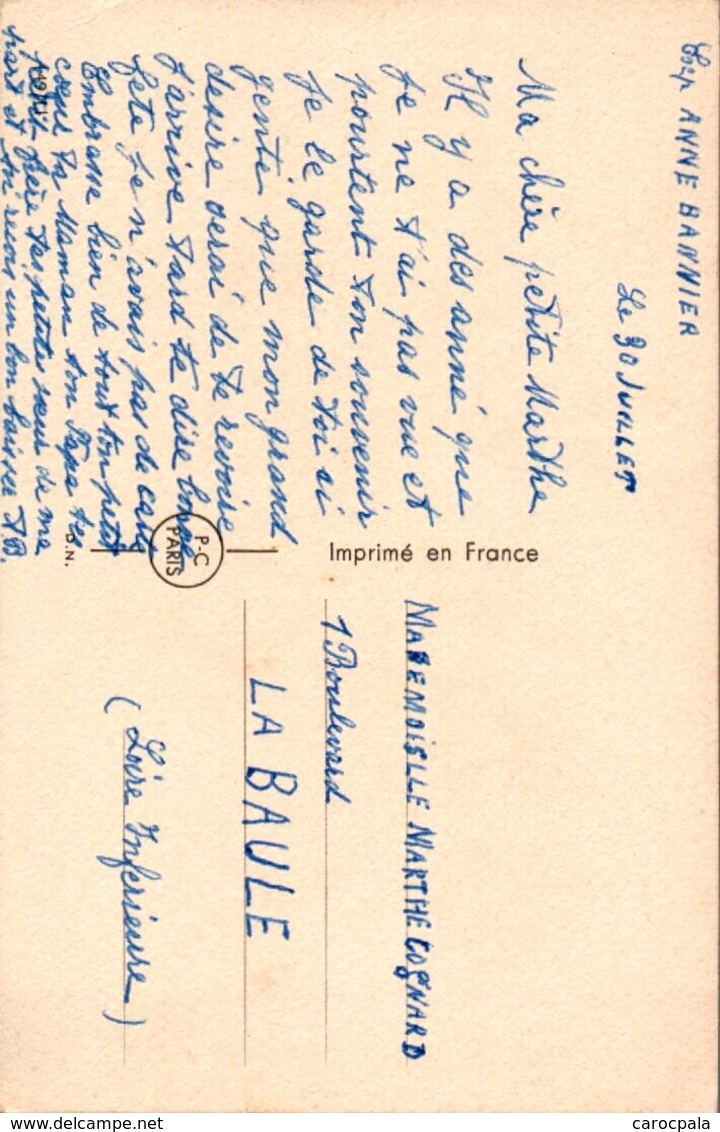 Exp ANNE BANNIER
Le 30 JUILLET
Ma chère petite Marthe
Il y a des anné que
Je ne t'ai pas vue et
pourtent ton souvenir
Je le garde de toi si
gentil que mon grand
desire serai de te revoire
J'arrive tard te dire bonne
fete Je n'avais pas de carte
Embrasse bien de tout ton petit
cœur ta Maman ton Papa tes
petit frère tes petites sœur de ma
part et toi reçois un bon baiser A B.
P-C
PARIS
D.N.
Imprimé en France
MADEMOISLLE MARTHE COGNARD
1 Boulevard
LA BAULE
(Loire Inferieure)
www.delcampe.net
carocpala